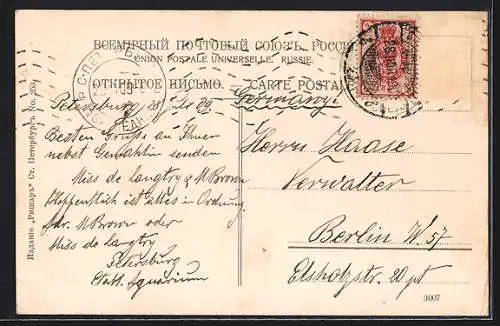 ВСЕМІРНЫЙ ПОЧТОВЫЙ СОЮЗЪ. РОССІЯ
UNION POSTALE UNIVERSELLE. RUSSIE.
ОТКРЫТОЕ ПИСЬМО. CARTE POSTALE
Petersburg
Germany.
Besten Gruss an Ihnen
nebst Gemahlin senden
Miss de Langtry & M Brown
Hoffentlich ist alles in Ordnung
M Brown oder
Miss de Langtry
Petersburg
Aquarium
Herrn Haase
Verwalter
Berlin W 57
Elsholzstr. 20 pt.
Изданіе „Ришаръ“ Ст. Петербургъ. No.
3007